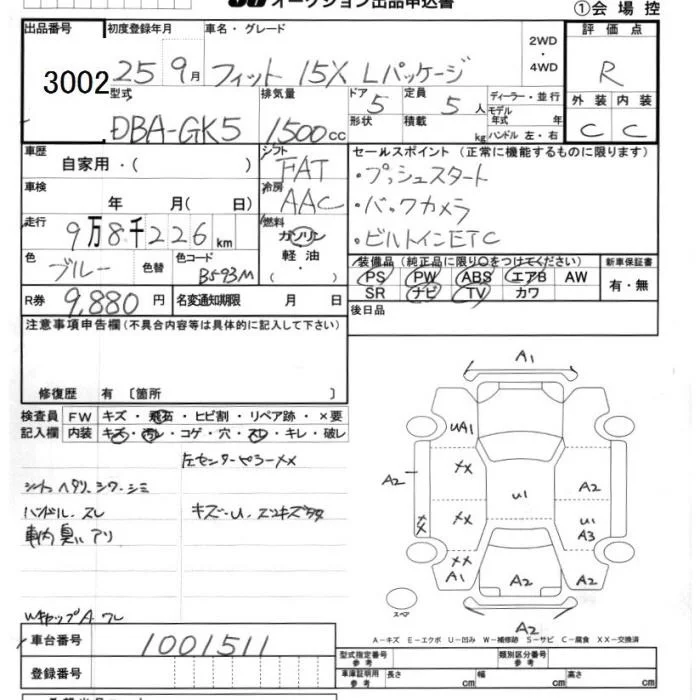 オークション出品申込書
①会場控
出品番号 初度登録年月 車名・グレード 2WD・4WD 評価点
3002 25 9月 フィット 15X Lパッケージ R
型式 排気量 ドア 5 定員 5人 ディーラー・並行 外装 内装
DBA-GK5 1500cc 形状 積載 kg モデル年式 年 ハンドル 左・右 C C
車歴 シフト セールスポイント (正常に機能するものに限ります)
自家用・( ) FAT ・プッシュスタート
車検 冷房
年 月( 日) AAC ・バックカメラ
走行 燃料
9万8千226km ガソリン ・ビルトインETC
色 色替 色コード 軽油 装備品 (純正品に限り○をつけてください) 新車保証書
ブルー B593M ・( ) PS PW ABS エアB AW 有・無
R券 9,880円 名変通知期限 月 日 SR ナビ TV カワ
注意事項申告欄(不具合内容等は具体的に記入して下さい) 後日品
修復歴 有 〔箇所 〕
検査員 FW キズ・飛石・ヒビ割・リペア跡・×要
記入欄 内装 キズ・汚レ・コゲ・穴・スレ・キレ・破レ
左センターピラーXX
シート ヘタリ、シワ、シミ
ハンドル、スレ キズ-U、
車内臭いアリ
WキャップA ワレ
A1
UA1
XX
A2 A2
U1
XX XX U1
A3
XX
A1 A2 A2
スペア
A2
A-キズ E-エクボ U-凹み W-補修跡 S-サビ C-腐食 XX-交換済
車台番号 1001511
型式指定番号 参考 類別区分番号 参考
登録番号 車庫証明用 参考 長さ cm 幅 cm 高さ cm